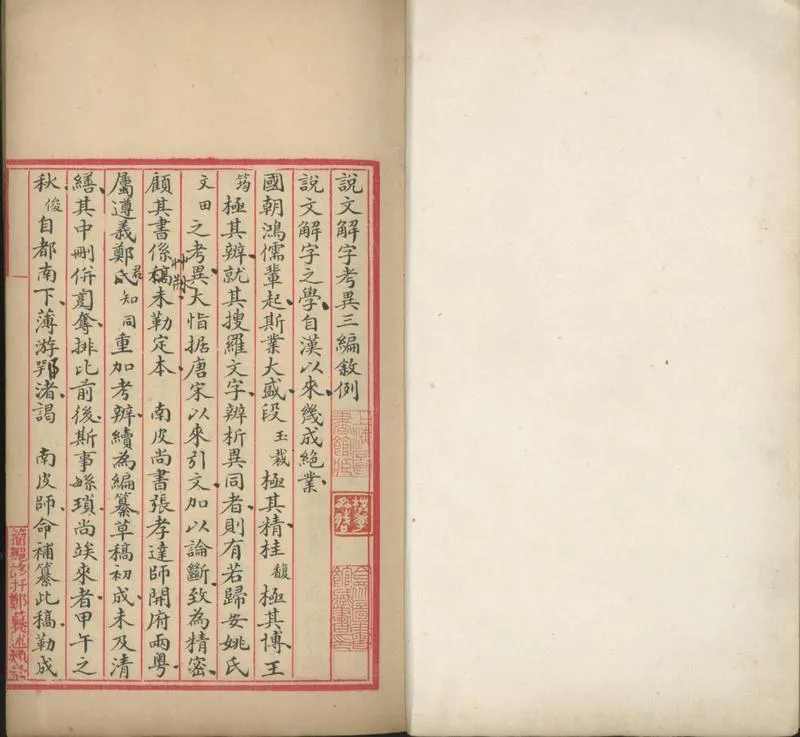 說文解字考異三編敘例
說文解字之學自漢以來幾成絕業
國朝鴻儒輩起斯業大盛段玉裁極其精桂馥極其博王
筠極其辨就其搜羅文字辨析異同者則有若歸安姚氏
文田之考異大恉据唐宋以來引文加以論斷致為精密
顧其書係稿未勒定本 南皮尚書張孝達師開府兩粵
屬遵義鄭氏知同重加考辨續為編纂草稿初成未及清
繕其中刪併奪排比前後斯事緐瑣尚竢來者甲午之
秋俊自都南下薄游鄂渚謁 南皮師命補纂此稿勒成